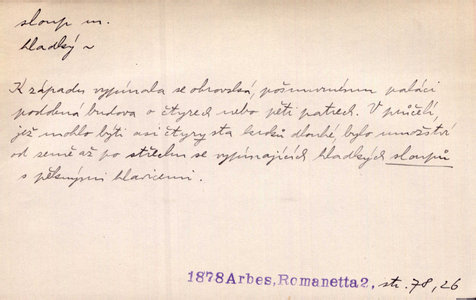 sloup m.
hladký ~
K západu vypínala se obrovská pošmurnému paláci
podobná budova o čtyřech nebo pěti patrech. V průčelí
jež mohlo býti asi čtyry sta kroků dlouhé, bylo množství
od země až po střechu se vypínajících hladkých sloupů
s pěknými hlavicemi.
1878 Arbes, Romanetta 2, str. 78, 26